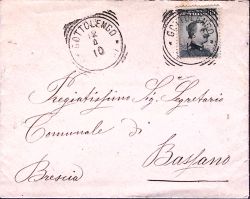 GOTTOLENGO
12
4
10
Pregiatissimo Sig. Segretario
Comunale di
Bassano
Brescia